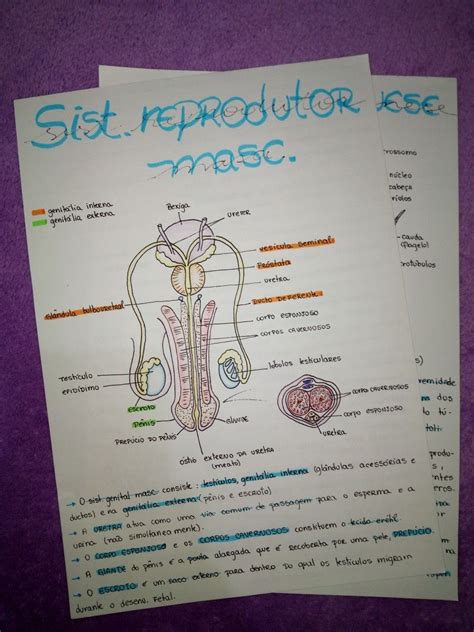 Sist. reprodutor
masc.
genitália interna
genitália externa
Bexiga
ureter
vesícula seminal
Próstata
uretra
Glândula bulbouretral
Ducto deferente
corpo esponjoso
corpos cavernosos
testículo
epidídimo
lóbulos testiculares
escroto
Pênis
Prepúcio do pênis
Glande
óstio externo da uretra
(meato)
corpos cavernosos
corpo esponjoso
uretra
→ O sist. genital masc. consiste: testículos, genitália interna (glândulas acessórias e
ductos) e na genitália externa (pênis e escroto)
→ A URETRA atua como uma via comum de passagem para o esperma e a
urina (não simultaneamente).
→ O CORPO ESPONJOSO e os CORPOS CAVERNOSOS constituem o tecido erétil.
→ A GLANDE do pênis é a ponta alargada que é recoberta por uma pele, PREPÚCIO
→ O ESCROTO é um saco externo para dentro do qual os testículos migram
durante o desenv. Fetal.
núcleo
cabeça
cauda
(flagelo)